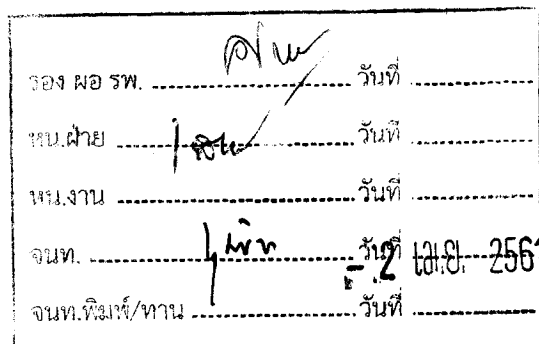 รอง ผอ รพ. ........................ วันที่ ....................
หน.ฝ่าย ........................ วันที่ ....................
หน.งาน ........................ วันที่ ....................
จนท. ........................ วันที่ - 2 เม.ย. 256
จนท.พิมพ์/ทาน ........................ วันที่ ....................